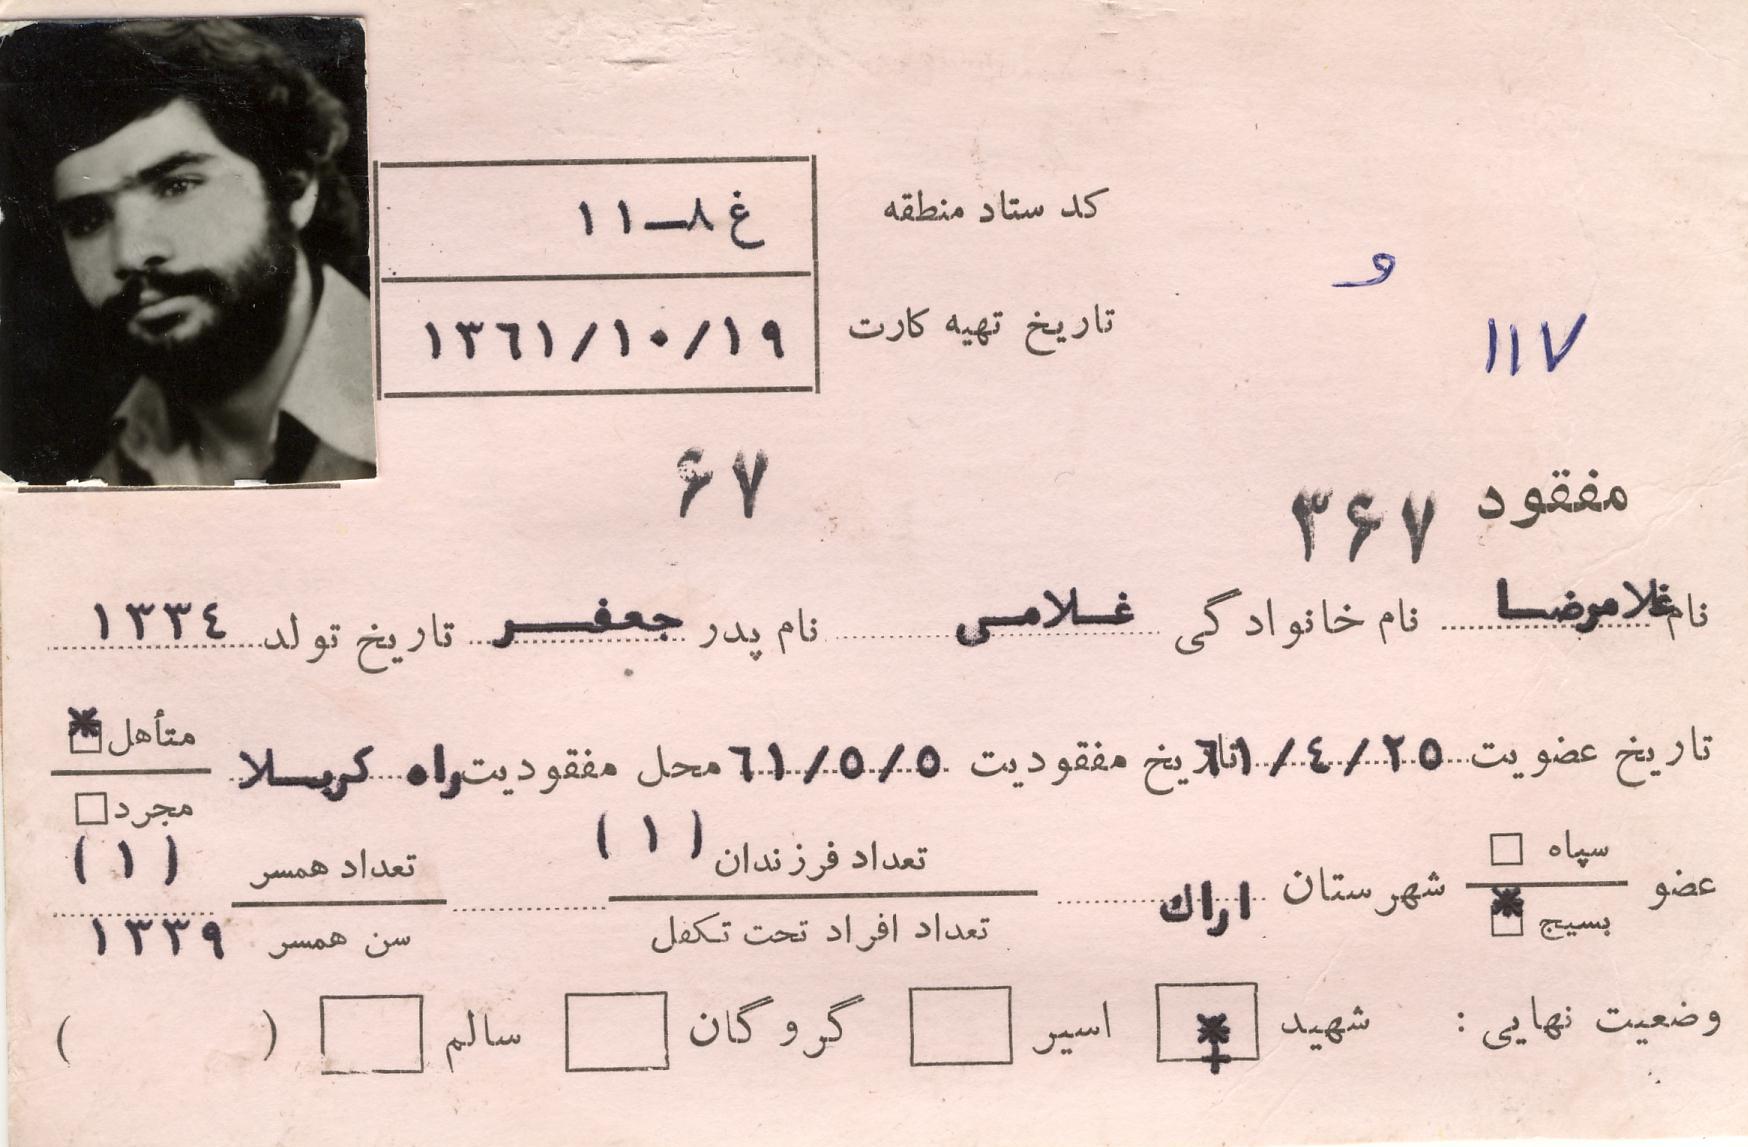 کد ستاد منطقه غ ۸ـ۱۱
و
تاریخ تهیه کارت ۱۳٦۱/۱۰/۱۹
۱۱۷
مفقود ۳۶۷ ۶۷
نام غلامرضا نام خانوادگی غلامی نام پدر جعفر تاریخ تولد ۱۳۳٤
تاریخ عضویت ٦۱/٤/۲۵ تاریخ مفقودیت ٦۱/۵/۵ محل مفقودیت راه کربلا متأهل
مجرد
عضو سپاه بسیج شهرستان اراك تعداد فرزندان (۱) تعداد همسر (۱)
تعداد افراد تحت تکفل سن همسر ۱۳۳۹
وضعیت نهایی : شهید اسیر گروگان سالم ( )